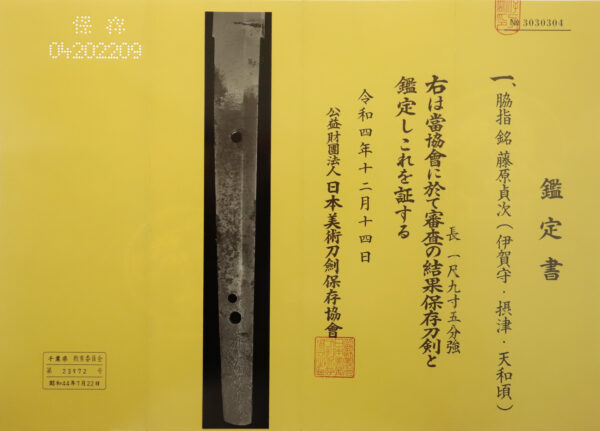 № 3030304
鑑定書
一、脇指 銘 藤原貞次(伊賀守・摂津・天和頃)
長 一尺九寸五分強
右は當協會に於て審査の結果保存刀剣と
鑑定しこれを証する
令和四年十二月十四日
公益財團法人 日本美術刀剣保存協會
保存
04202209
千葉県 教育委員会
第 23972 号
昭和44年7月22日